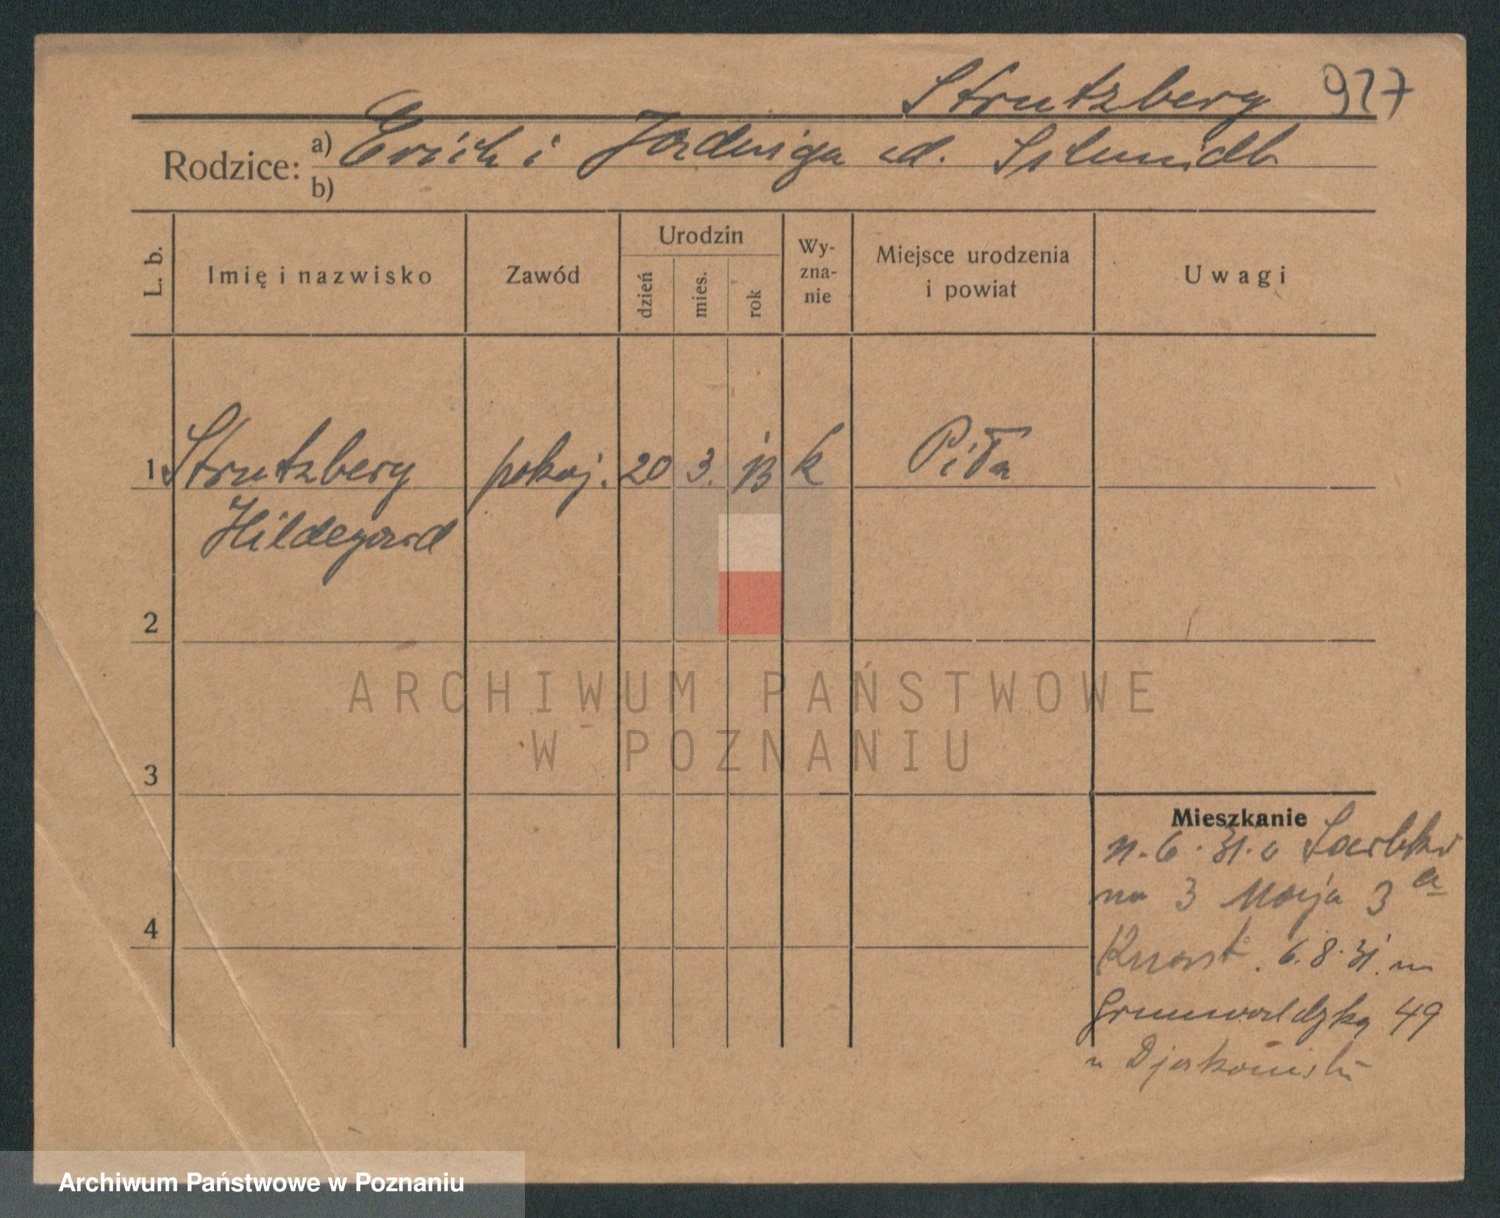 Strutzberg 927
Rodzice: a) Erich i Jadwiga d. Schmidt
b)
L. b. Imię i nazwisko Zawód Urodzin dzień mies. rok Wyzna-nie Miejsce urodzenia i powiat Uwagi
1 Strutzberg pokoj. 20 3. 13 k Piła
Hildegard
2
ARCHIWUM PAŃSTWOWE
W POZNANIU
3
Mieszkanie
n. 6. 31. u
na 3 Maja 3 a
4
6. 8. 31. na
Grunwaldzką 49
u
Archiwum Państwowe w Poznaniu